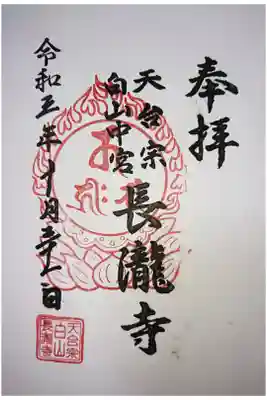 奉拝
天台宗
白山中宮
長瀧寺
令和五年十月日
天台宗
白山
長瀧寺